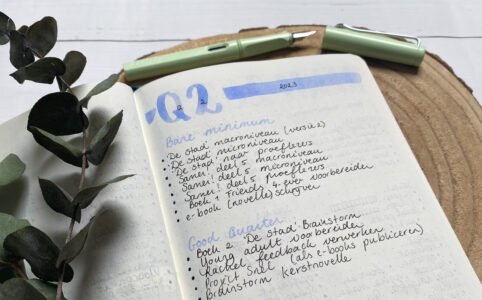 Q2
2023
Bare minimum
'De Stad' macroniveau (versie 2)
'De Stad' microniveau
'De Stad' naar proeflezers
Samen! deel 5 macroniveau
Samen! deel 5 microniveau
Samen! deel 5 proeflezers
Boek 1 Friends 4-ever voorbereiden
e-book (novelle) schrijven
Good Quarter
Boek 2 'De Stad' Brainstorm
Young adult voorbereiden
Rachel feedback verwerken
Project Snel (als e-books publiceren)
Brainstorm kerstnovelle